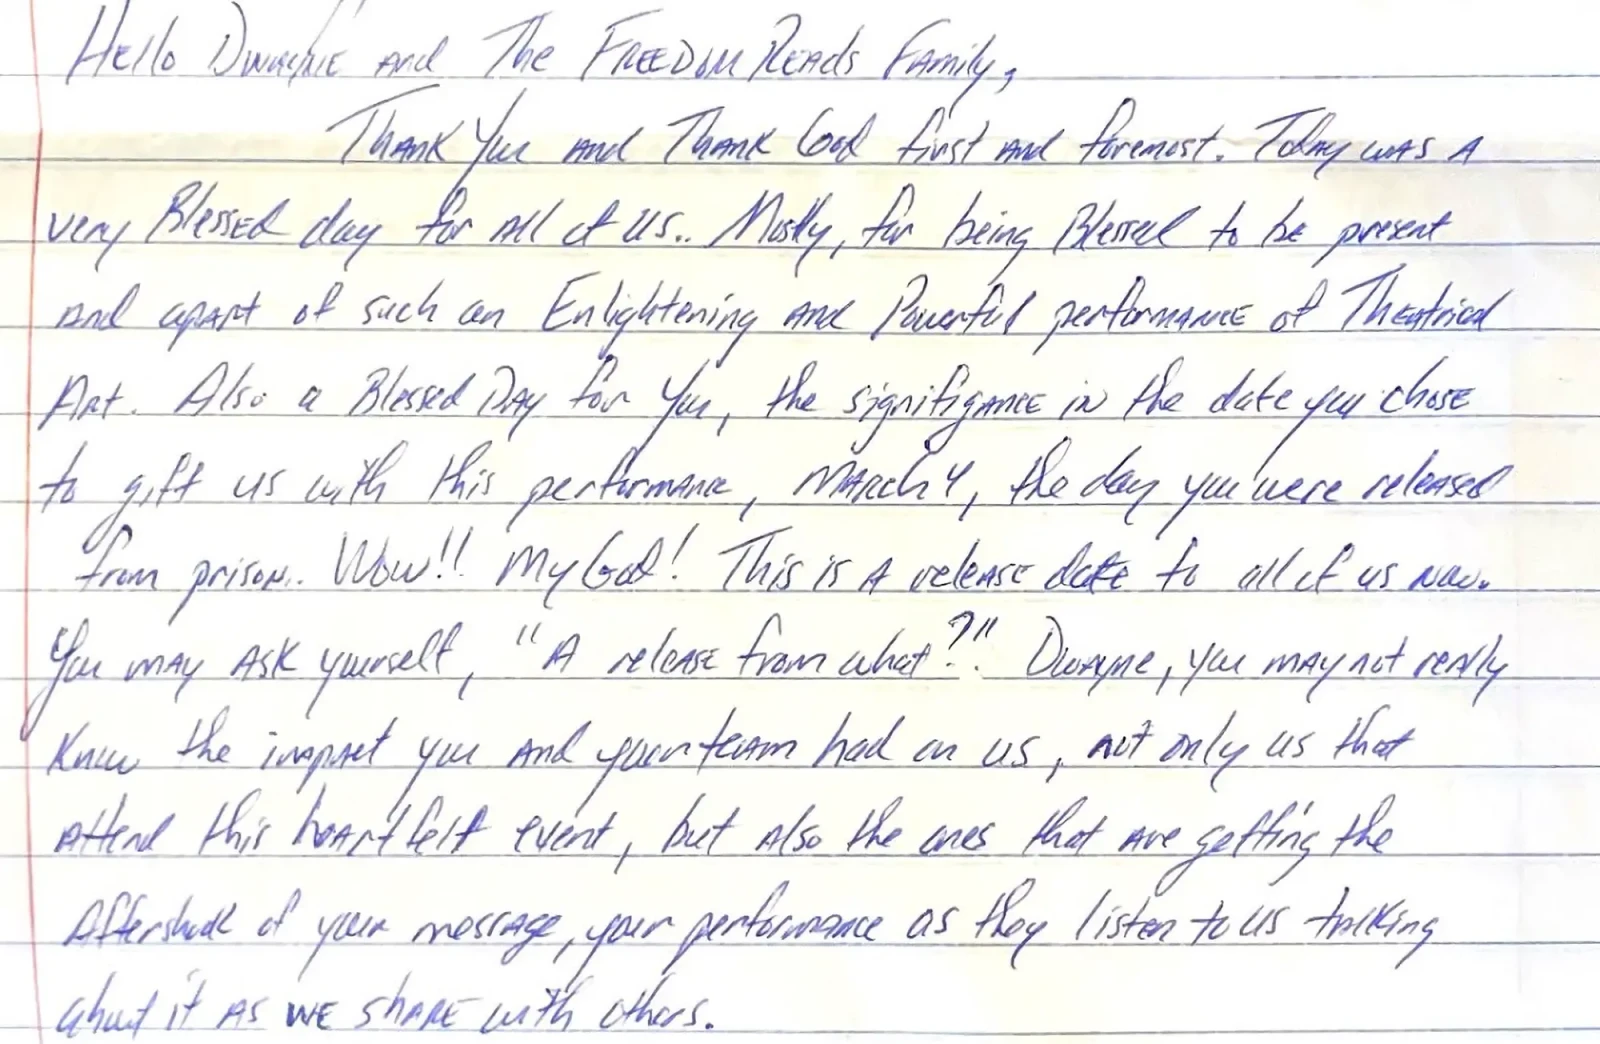 Hello Dwayne and The Freedom Reads Family,
Thank You and Thank God first and foremost. Today was a
very Blessed day for all of us.. Mostly, for being Blessed to be present
and apart of such an Enlightening and Powerful performance of Theatrical
Art. Also a Blessed Day for You, the signifigance in the date you chose
to gift us with this performance, March 4, the day you were released
from prison.. Wow!! My God! This is a release date to all of us now.
You may ask yourself, "A release from what?". Dwayne, you may not really
know the impact you and your team had on us, not only us that
attend this heartfelt event, but also the ones that are getting the
Aftershock of your message, your performance as they listen to us talking
about it as we share with others.